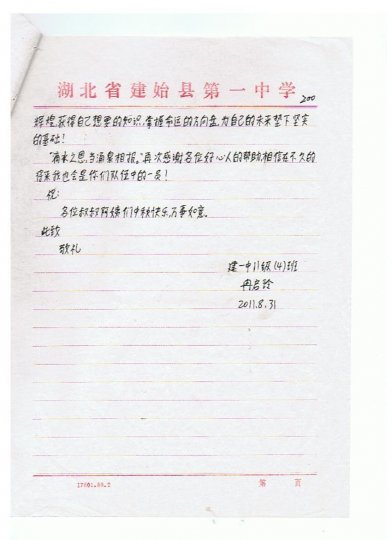 湖北省建始县第一中学
200
辉煌,获得自己想要的知识,掌握命运的方向盘,为自己的未来垫下坚实
的基础!
"滴水之恩,当涌泉相报。"再次感谢各位好心人的帮助,相信在不久的
将来我也会是你们队伍中的一员!
祝:
各位叔叔阿姨们中秋快乐,万事如意。
此致
敬礼
建一中11级(4)班
冉启玲
2011.8.31
17601.88.2
第 页